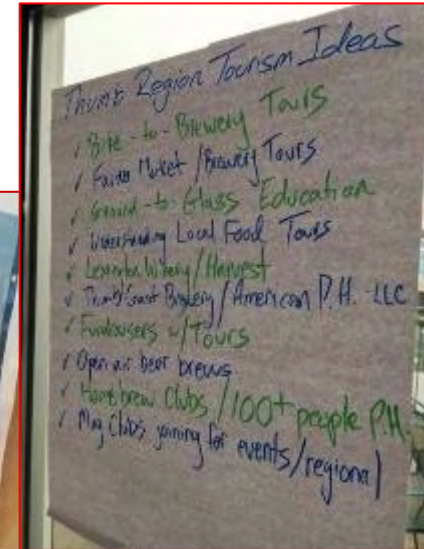 Thumb Region Tourism Ideas
✓ Bike-to-Brewery Tours
✓ Farmer Market/Brewery Tours
✓ Ground-to-Glass Education
✓ Understanding Local Food Tours
✓ Winery/Harvest
✓ Thumb Coast Brewery/American P.H.-LLC
✓ Fundraisers w/Tours
✓ Open air beer brews
✓ Homebrew Clubs/100+ people P.H.
✓ Mug Clubs joining for events/regional